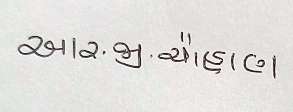 આર.જી.ચૌહાણ